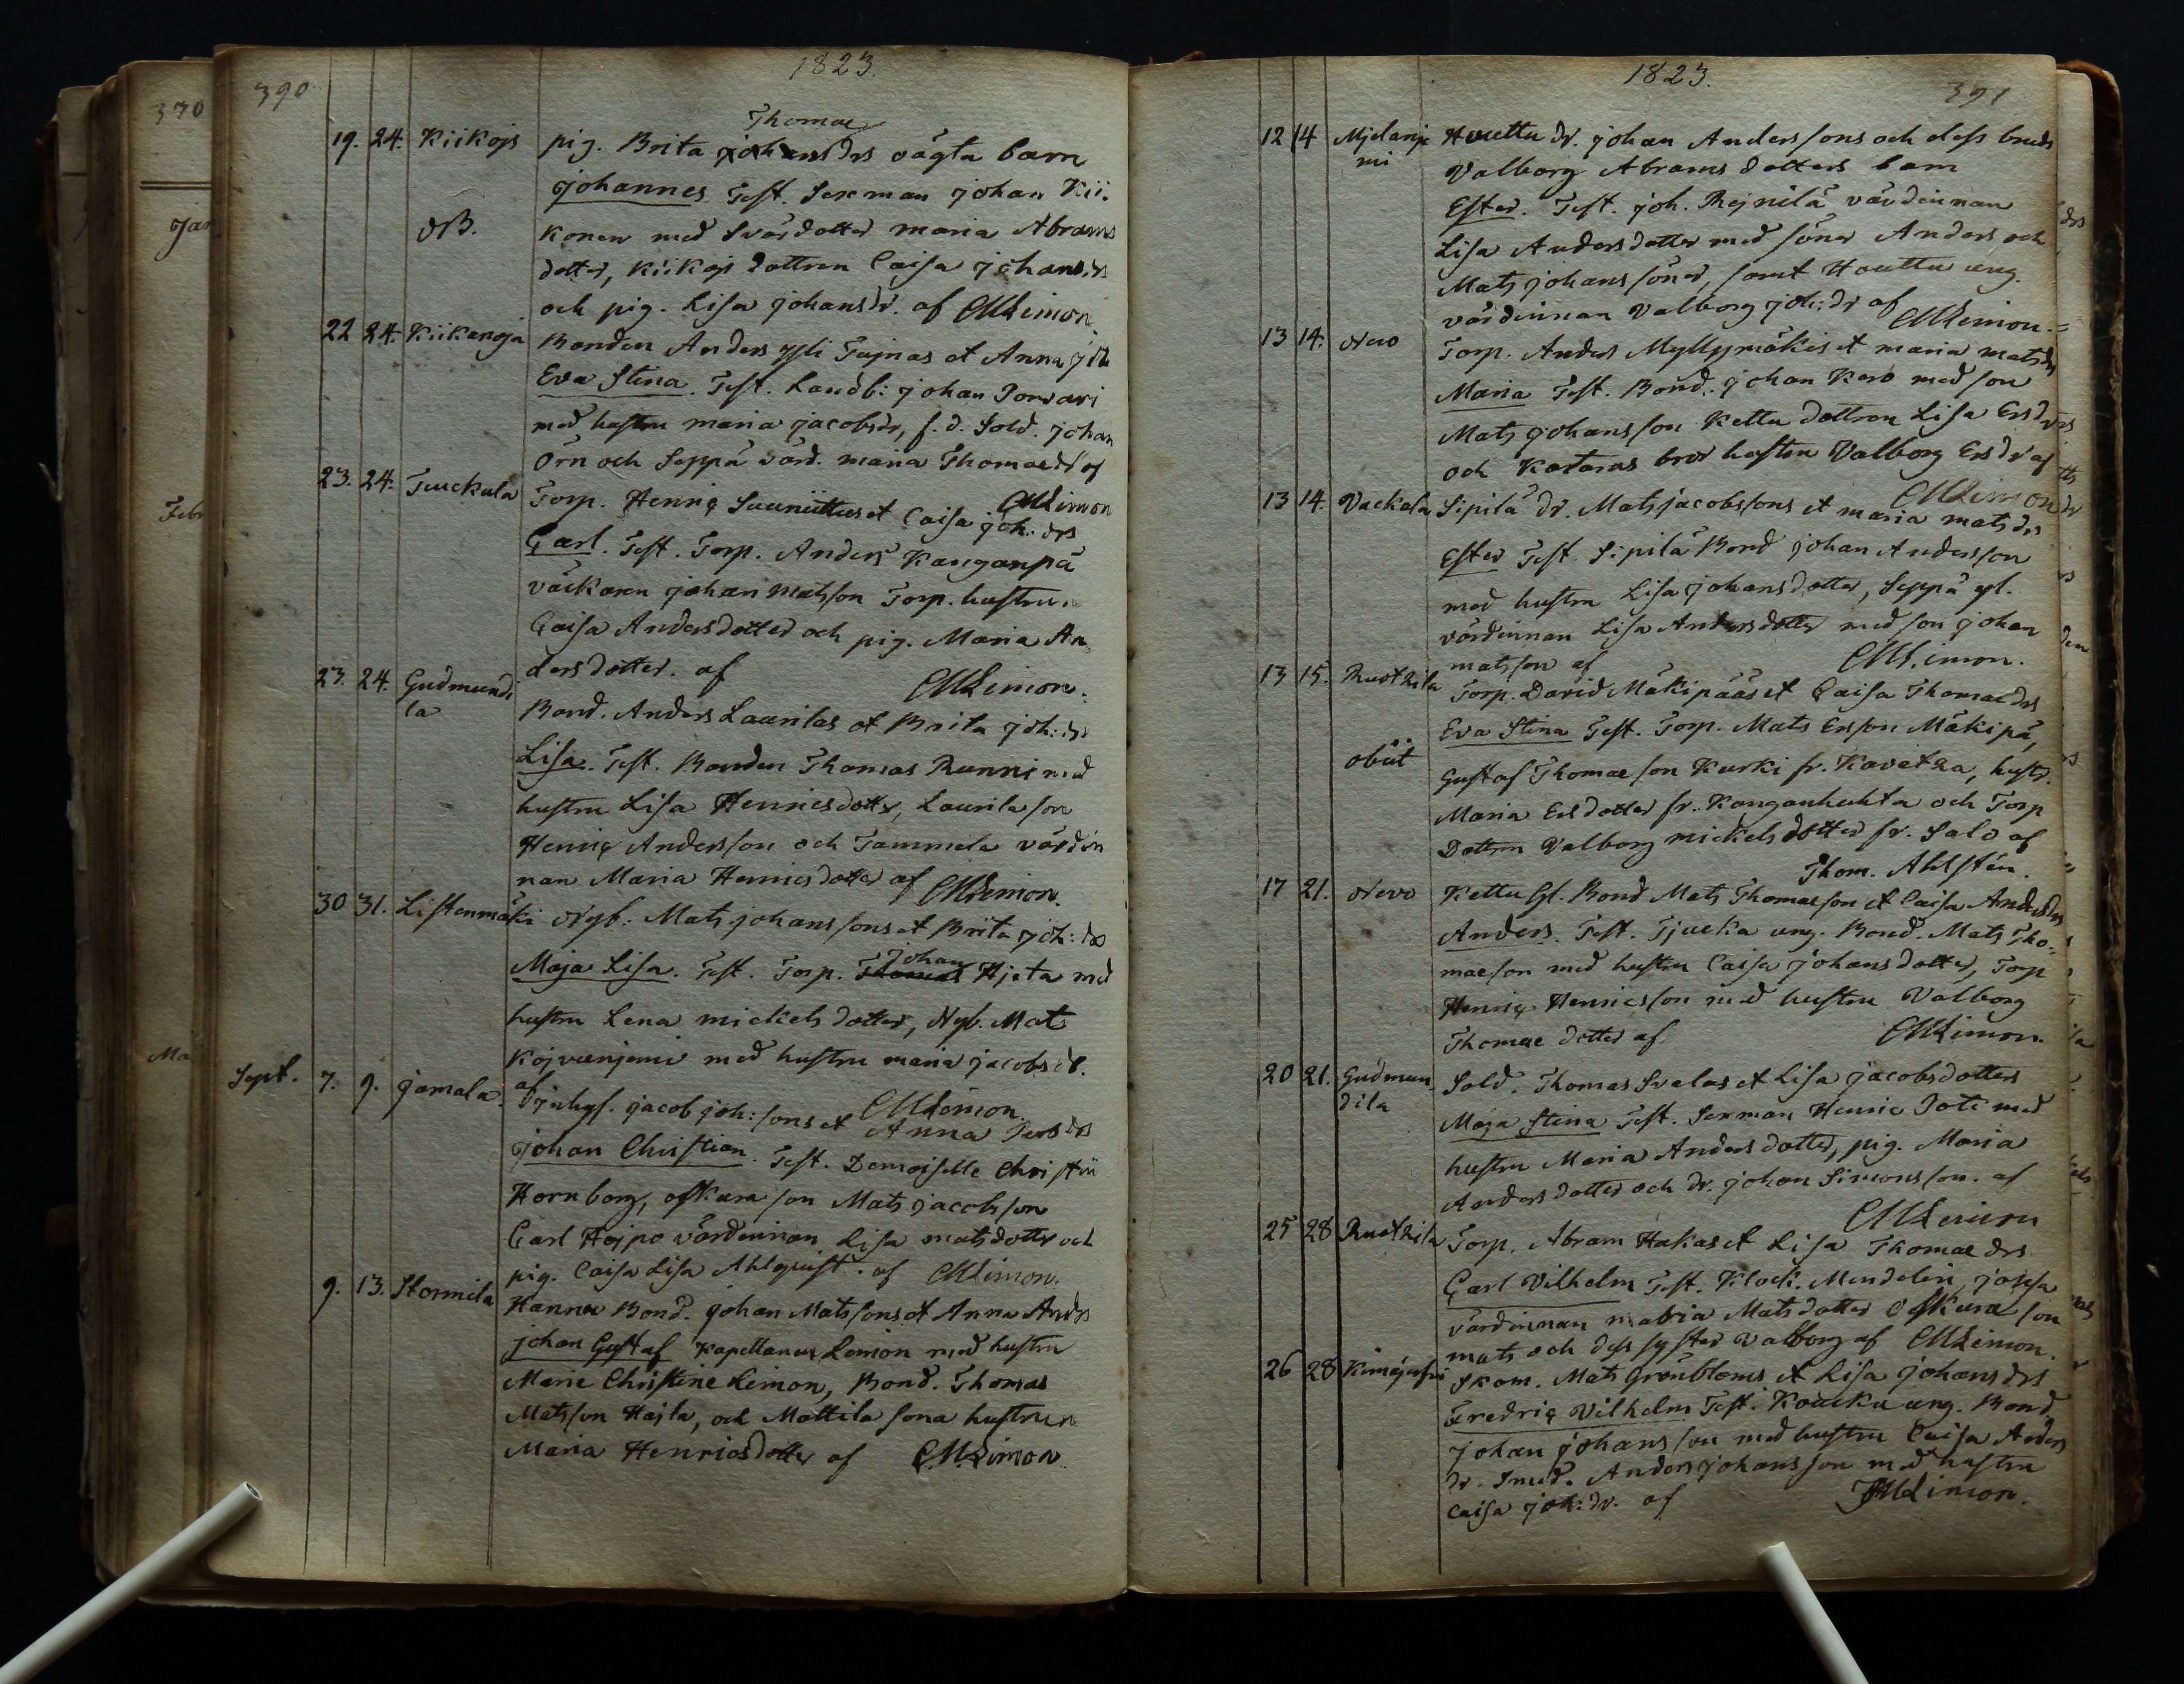 390
1823.
19. 24. Kiikojs pig. Brita Thomae drs oägta barn
Johannes. Test. Sexman Johan Kii-
NB. konen med Svärdotter Maria Abrams
dotter, Kiikojs dottren Caisa Johansdr
och pig. Lisa Johansdr. af CMLimon.
22 24. Kiikanoja Bonden Anders Yli Tujnas et Anna Joh
Eva Stina. Test. Landb: Johan Porvari
med hustru Maria Jacobsdr, f.d. Sold. Johan
Örn och Seppä värd. Maria Thomaedr af
CMLimon
23. 24. Tuuckula Torp. Henric et Caisa Joh: drs
Carl. Test. Torp. Anders Kanganpä
väckaren Johan Matsson Torp. hustrun
Caisa Andersdotter och pig. Maria An-
dersdotter. af CMLimon.
23. 24. Gudmundi
la Bond. Anders Laurilas et Brita Joh: drs
Lisa. Test. Bonden Thomas Runni med
hustru Lisa Henricsdotter, Laurila son
Henric Andersson och Tammela värdin
nan Maria Henricsdotter af CMLimon.
30 31. Listenmäki Nyb. Mats Johanssons et Brita Joh: drs
Maja Lisa. Test. Torp. Johan Hjeta med
hustru Lena Mickelsdotter, Nyb. Mats
Kojvuniemi med hustru Maria Jacobsdr.
af CMLimon.
Sept. 7. 9. Jamala. Jacob Joh: sons et Anna drs
Johan Christian. Test. Demoiselle Christin
Hornborg, Oskura son Mats Jacobsson
Carl Hojpo värdinnan Lisa Matsdotter och
pig. Caisa Lisa Ahlquist. af CMLimon.
9. 13. Stormila Hannu Bond. Johan Matssons et Anna Andrs
Johan Gustaf Kapellanen Limon med hustru
Marie Christine Limon, Bond. Thomas
Matsson Hajla, och Mattila sona hustrun
Maria Henricsdotter af CMLimon.
1823.
391
12 14 Mjelanje
mi Houttu dr. Johan Anderssons och dess bruds
Valborg Abrams dotters barn
Ester. Test. Joh. Rejnilä värdinnan
Lisa Andersdotter med söner Anders och
Mats Johanssöner, samt Houttu ung.
värdinnan Valborg Joh: dr af CMLimon.
13 14. Nevo Torp. Anders Myllymäkis et Maria Matsdrs
Maria Test. Bond. Johan Kero med son
Mats Johansson Kettu dottren Lisa Ersdr
och Kataras bror hustru Valborg Ersdr af
CMLimon
13 14. Vackala Sipilä dr. Mats Jacobssons et Maria Mats drs
Ester Test. Sipilä Bond Johan Andersson
med hustru Lisa Johansdotter, Seppä gl.
värdinnan Lisa Andersdotter med son Johan
Matsson af CMLimon.
13 15. Ruotzila Torp. David Mäkipääs et Caisa Thomae drs
Eva Stina Test. Torp. Mats Erson Mäkipä,
obiit Gustaf Thomaeson Kurki fr. Kavetza, hustr.
Maria Ersdotter fr. Kanganhuhta och Torp
Dottren Valborg Mickelsdotter fr. Salo af
Thom. Ahlstén.
17 21. Nevo Kettu Gl. Bond Mats Thomaeson et Caisa Anders drs
Anders. Test. Tjucka ung. Bond. Mats Tho-
maeson med hustru Caisa Johansdotter, Torp
Henric Henricsson med hustru Valborg
Thomae dotter af CMLimon.
20 21. Gudmun-
dila Sold. Thomas Svalas et Lisa Jacobsdotters
Maja Stina Test. Sexman Henric Doti med
hustru Maria Andersdotter, pig. Maria
Andersdotter och dr. Johan Simonsson. af
CMLimon
25 28 Ruotzila Torp. Abram Hakas et Lisa Thomae drs
Carl Vilhelm Test. Klock. Mendelin,
värdinnan Maria Matsdotter Oskura son
Mats och dess syster Valborg af CMLimon.
26 28 Skom. Mats Grönbloms et Lisa Johans drs
Fredric Vilhelm Test. Koucku ung. Bond
Johan Johansson med hustru Caisa Anders
dr. Smed. Anders Johansson med hustru
Caisa Joh: dr. af CMLimon.